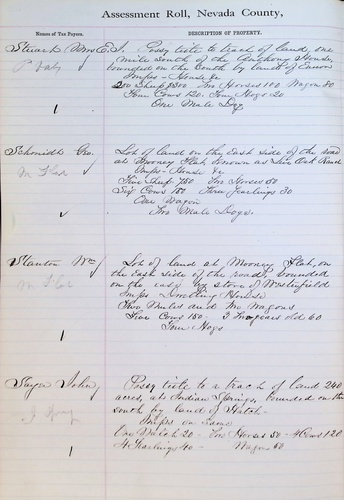 Assessment Roll, Nevada County,
Names of Tax Payers.
DESCRIPTION OF PROPERTY.
Stuart Mrs E. S. Possy title to tract of land, one
mile south of the Anthony House,
bounded on the south by land of Ennor
Imps - House &c
200 Sheep $300 Two Horses 100 Wagon 80
Four Cows 120. Four Hogs 20
One Male Dog
1
Schmidt Geo. Lot of land on the East side of the road
M Flat at Mooney Flat known as Live Oak Ranch
Imps - House &c
Five Sheep 750 Two Horses 50
Six Cows 180 Three Yearlings 30
One Wagon
Two Male Dogs.
Stanton Wm Lot of land at Mooney Flat, on
M Flat the East side of the road, bounded
on the by store of Westerfield
Imps Dwelling House
Two Mules and Two Wagons
Five Cows 150 3 Two years old 60
Four Hogs
1
John Possy title to a tract of land 240
acres, at Indian Springs, bounded on the
south by land of Hatch -
Imps on Same
One Watch 20 - Two Horses 50 - 4 Cows 120
4 Yearlings 40 - Wagon 50
1